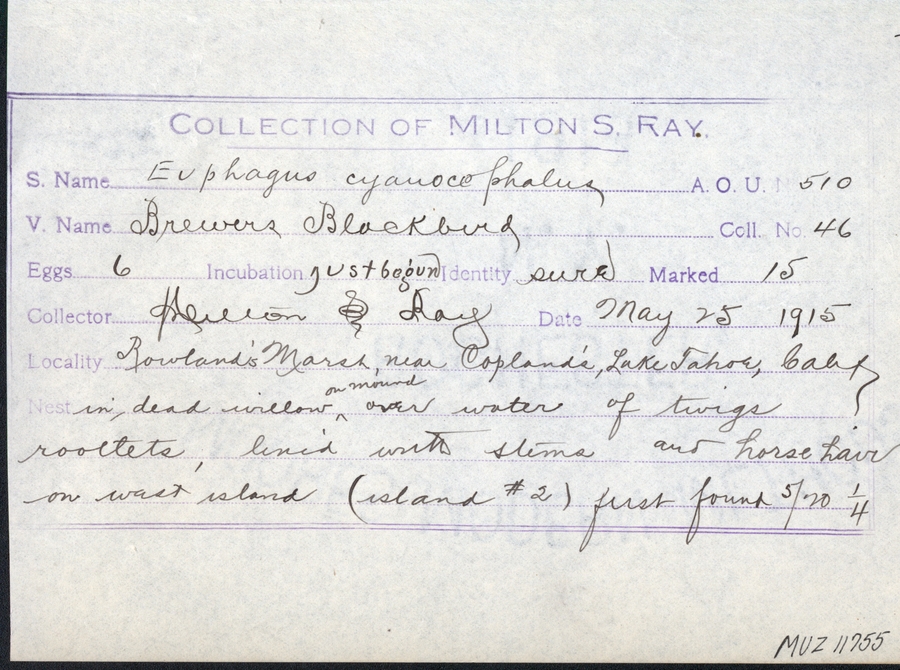 COLLECTION OF MILTON S. RAY.
S. Name Euphagus cyanocephalus A. O. U. N 510
V. Name Brewers Blackbird Coll. No. 46
Eggs 6 Incubation just begun Identity sure Marked 15
Collector Milton S Ray Date May 25 1915
Locality Rowland's Marsh, near Copland's, Lake Tahoe, Calif
on mound
Nest in dead willow ^ over water of twigs
rootlets, lin'd with stems and horse hair
on west island (island #2) first found 5/20 1/4
MUZ 11755